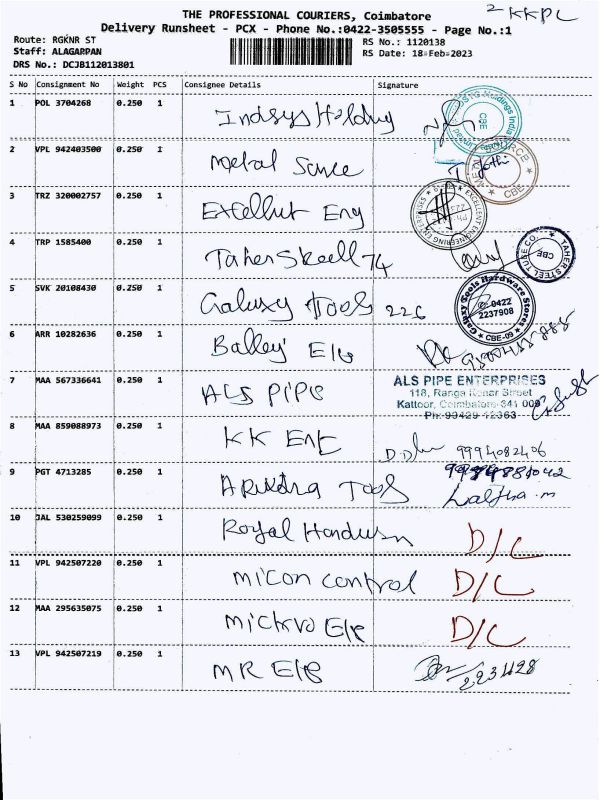 THE PROFESSIONAL COURIERS, Coimbatore
2 KKPL
Delivery Runsheet - PCX - Phone No.:0422-3505555 - Page No.:1
Route: RGKNR ST
RS No.: 1120138
Staff: ALAGARPAN
RS Date: 18-Feb-2023
DRS No.: DCJB112013801
S No Consignment No Weight PCS Consignee Details Signature
1 POL 3704268 0.250 1 Indsys Holding
2 VPL 942403500 0.250 1 Metal Source
3 TRZ 320002757 0.250 1 Excellent Eng
4 TRP 1585400 0.250 1 Taher Steell 74
TAHER STEEL TUBE CO. CBE
5 SVK 20108430 0.250 1 Galaxy Tools 226
Galaxy Tools Hardware Stores
0422
2237908
CBE-09
6 ARR 10282636 0.250 1
7 MAA 567336641 0.250 1 ALS PIPE
ALS PIPE ENTERPRISES
118, Ranga Konar Street
Kattoor, Coimbatore-641 009
Ph: 99429 12363
8 MAA 859088973 0.250 1 KK Ent 9994082406
9 PGT 4713285 0.250 1 Tools
Lalitha.m
10 JAL 530259099 0.250 1 Royal D/C
11 VPL 942507220 0.250 1 Micon control D/C
12 MAA 295635075 0.250 1 D/C
13 VPL 942507219 0.250 1 MR